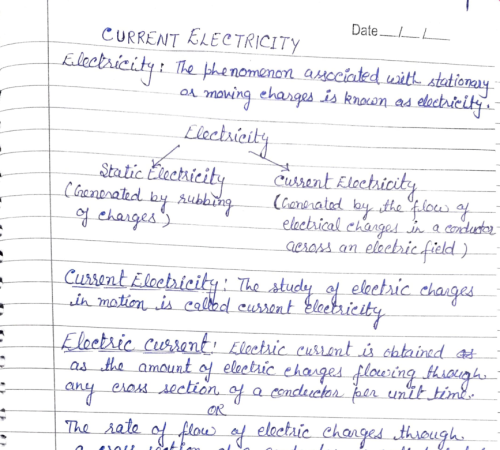 Date __/__/__
CURRENT ELECTRICITY
Electricity: The phenomenon associated with stationary
or moving charges is known as electricity.
Electricity
Static Electricity
(Generated by rubbing
of charges)
Current Electricity
(Generated by the flow of
electrical charges in a conductor
across an electric field)
Current Electricity: The study of electric charges
in motion is called current electricity
Electric current: Electric current is obtained
as the amount of electric charges flowing through
any cross section of a conductor per unit time.
OR
The rate of flow of electric charges through
a cross section of a